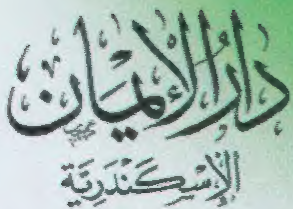 دَارُ الْإِيمَان
الْإِسْكَنْدَرِيَّة